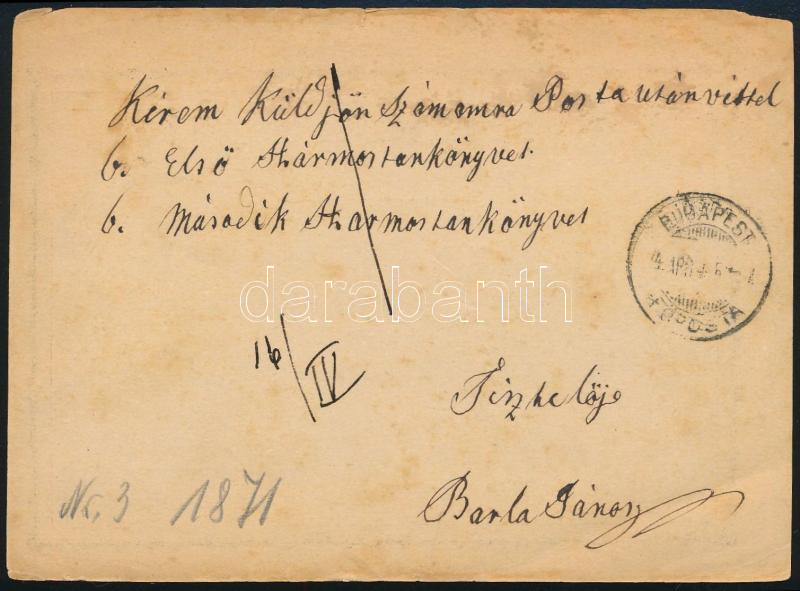 Kérem Küldjön Számomra Posta utánvéttel
6. Első Hármostankönyvet.
6. Második Harmostankönyvet
BUDAPEST
FŐPOSTA
darabanth
16/IV
Tisztelője
Barla János
Nr. 3 1871